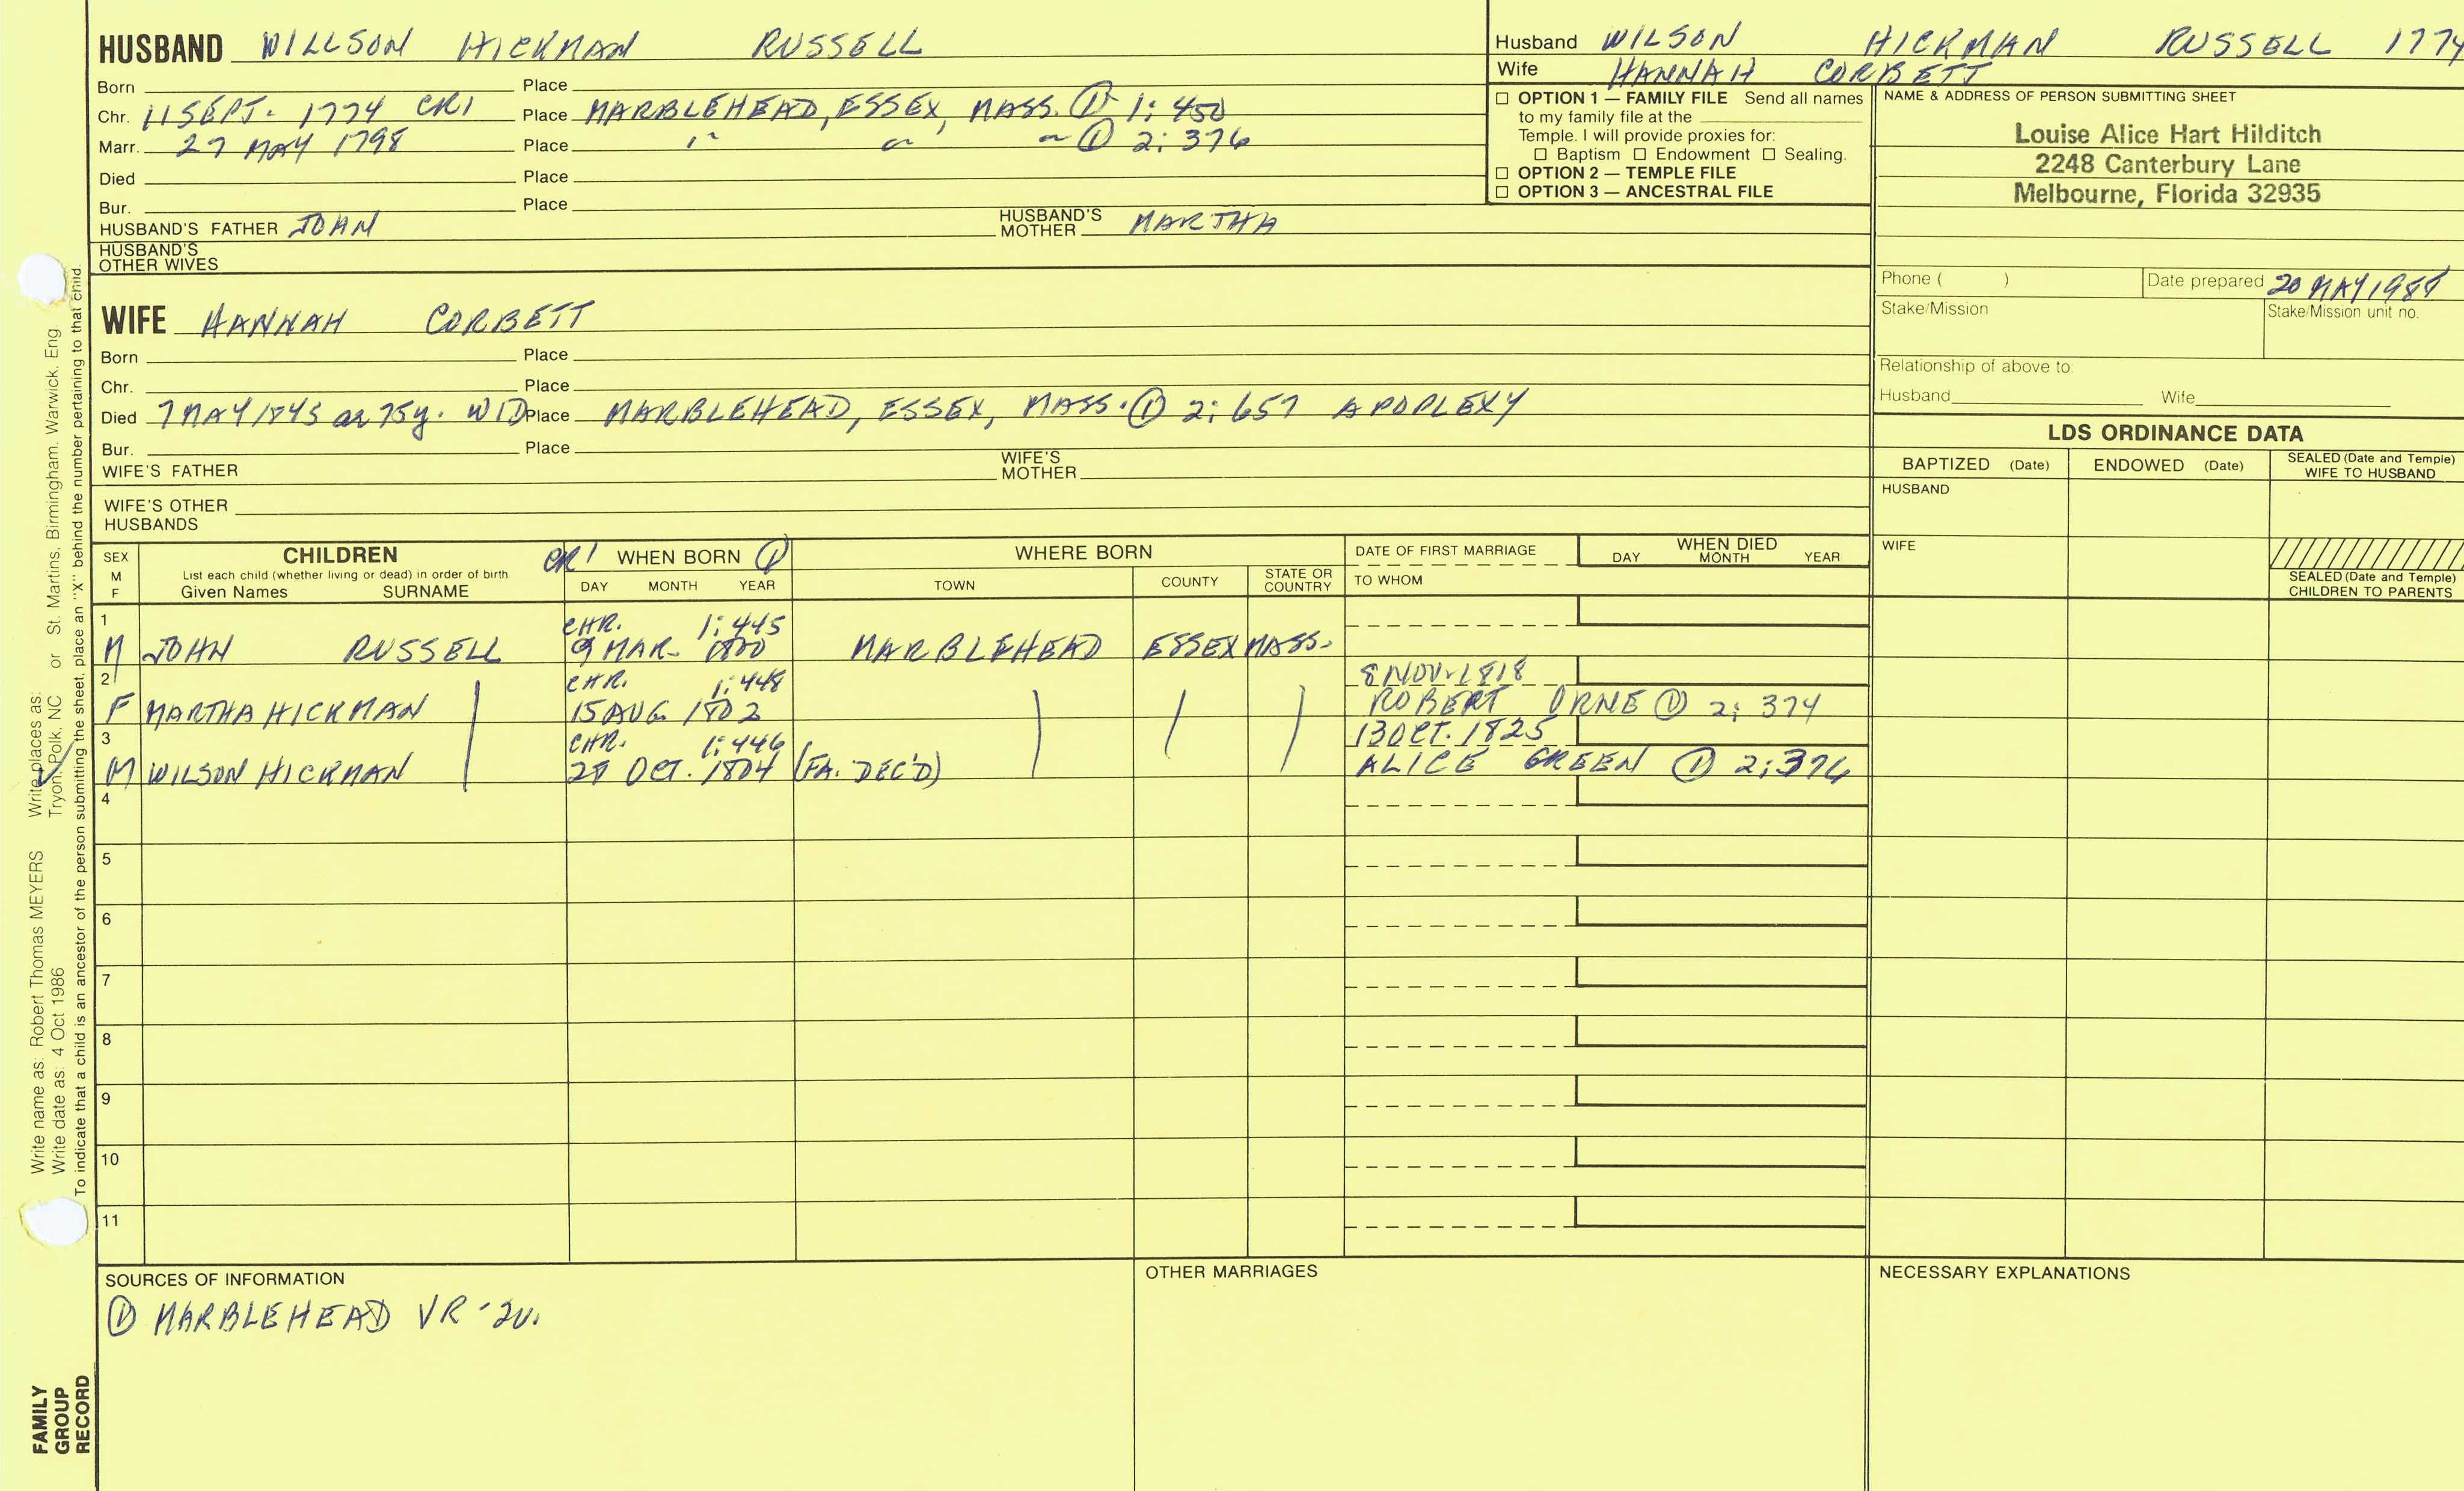 HUSBAND WILLSON HICKMAN RUSSELL
Born Place
Chr. 11 SEPT. 1774 CR1 Place MARBLEHEAD, ESSEX, MASS. ① 1: 450
Marr. 27 MAY 1798 Place " " " ① 2: 376
Died Place
Bur. Place
HUSBAND'S FATHER JOHN HUSBAND'S MOTHER MARTHA
HUSBAND'S OTHER WIVES
Husband WILSON HICKMAN RUSSELL 1774
Wife HANNAH CORBETT
☐ OPTION 1 — FAMILY FILE Send all names
to my family file at the
Temple. I will provide proxies for:
☐ Baptism ☐ Endowment ☐ Sealing.
☐ OPTION 2 — TEMPLE FILE
☐ OPTION 3 — ANCESTRAL FILE
NAME & ADDRESS OF PERSON SUBMITTING SHEET
Louise Alice Hart Hilditch
2248 Canterbury Lane
Melbourne, Florida 32935
Phone ( )
Date prepared 20 MAY
Stake/Mission
Stake/Mission unit no.
Relationship of above to:
Husband Wife
WIFE HANNAH CORBETT
Born Place
Chr. Place
Died 7 MAY 1845 ae 75y. WID Place MARBLEHEAD, ESSEX, MASS. ① 2: 657 APOPLEXY
Bur. Place
WIFE'S FATHER WIFE'S MOTHER
WIFE'S OTHER HUSBANDS
LDS ORDINANCE DATA
BAPTIZED (Date) ENDOWED (Date) SEALED (Date and Temple) WIFE TO HUSBAND
HUSBAND
WIFE
SEALED (Date and Temple) CHILDREN TO PARENTS
SEX M F
CHILDREN
List each child (whether living or dead) in order of birth
Given Names SURNAME
CR1 WHEN BORN ①
DAY MONTH YEAR
WHERE BORN
TOWN COUNTY STATE OR COUNTRY
DATE OF FIRST MARRIAGE
TO WHOM
WHEN DIED
DAY MONTH YEAR
1 CHR. 1: 445
M JOHN RUSSELL 9 MAR. 1800 MARBLEHEAD ESSEX MASS.
2 CHR. 1: 448 8 NOV. 1818
F MARTHA HICKMAN 15 AUG 1802 ROBERT ORNE ① 2: 374
3 CHR. 1: 446 13 OCT. 1825
M WILSON HICKMAN 28 OCT. 1804 (FA. DEC'D) ALICE GREEN ① 2: 376
4
5
6
7
8
9
10
11
SOURCES OF INFORMATION
① MARBLEHEAD VR - 2v.
OTHER MARRIAGES
NECESSARY EXPLANATIONS
Write name as: Robert Thomas MEYERS Write places as: Tryon, Polk, NC or St. Martins, Birmingham, Warwick, Eng
Write date as: 4 Oct 1986
To indicate that a child is an ancestor of the person submitting the sheet, place an "X" behind the number pertaining to that child.
FAMILY
GROUP
RECORD